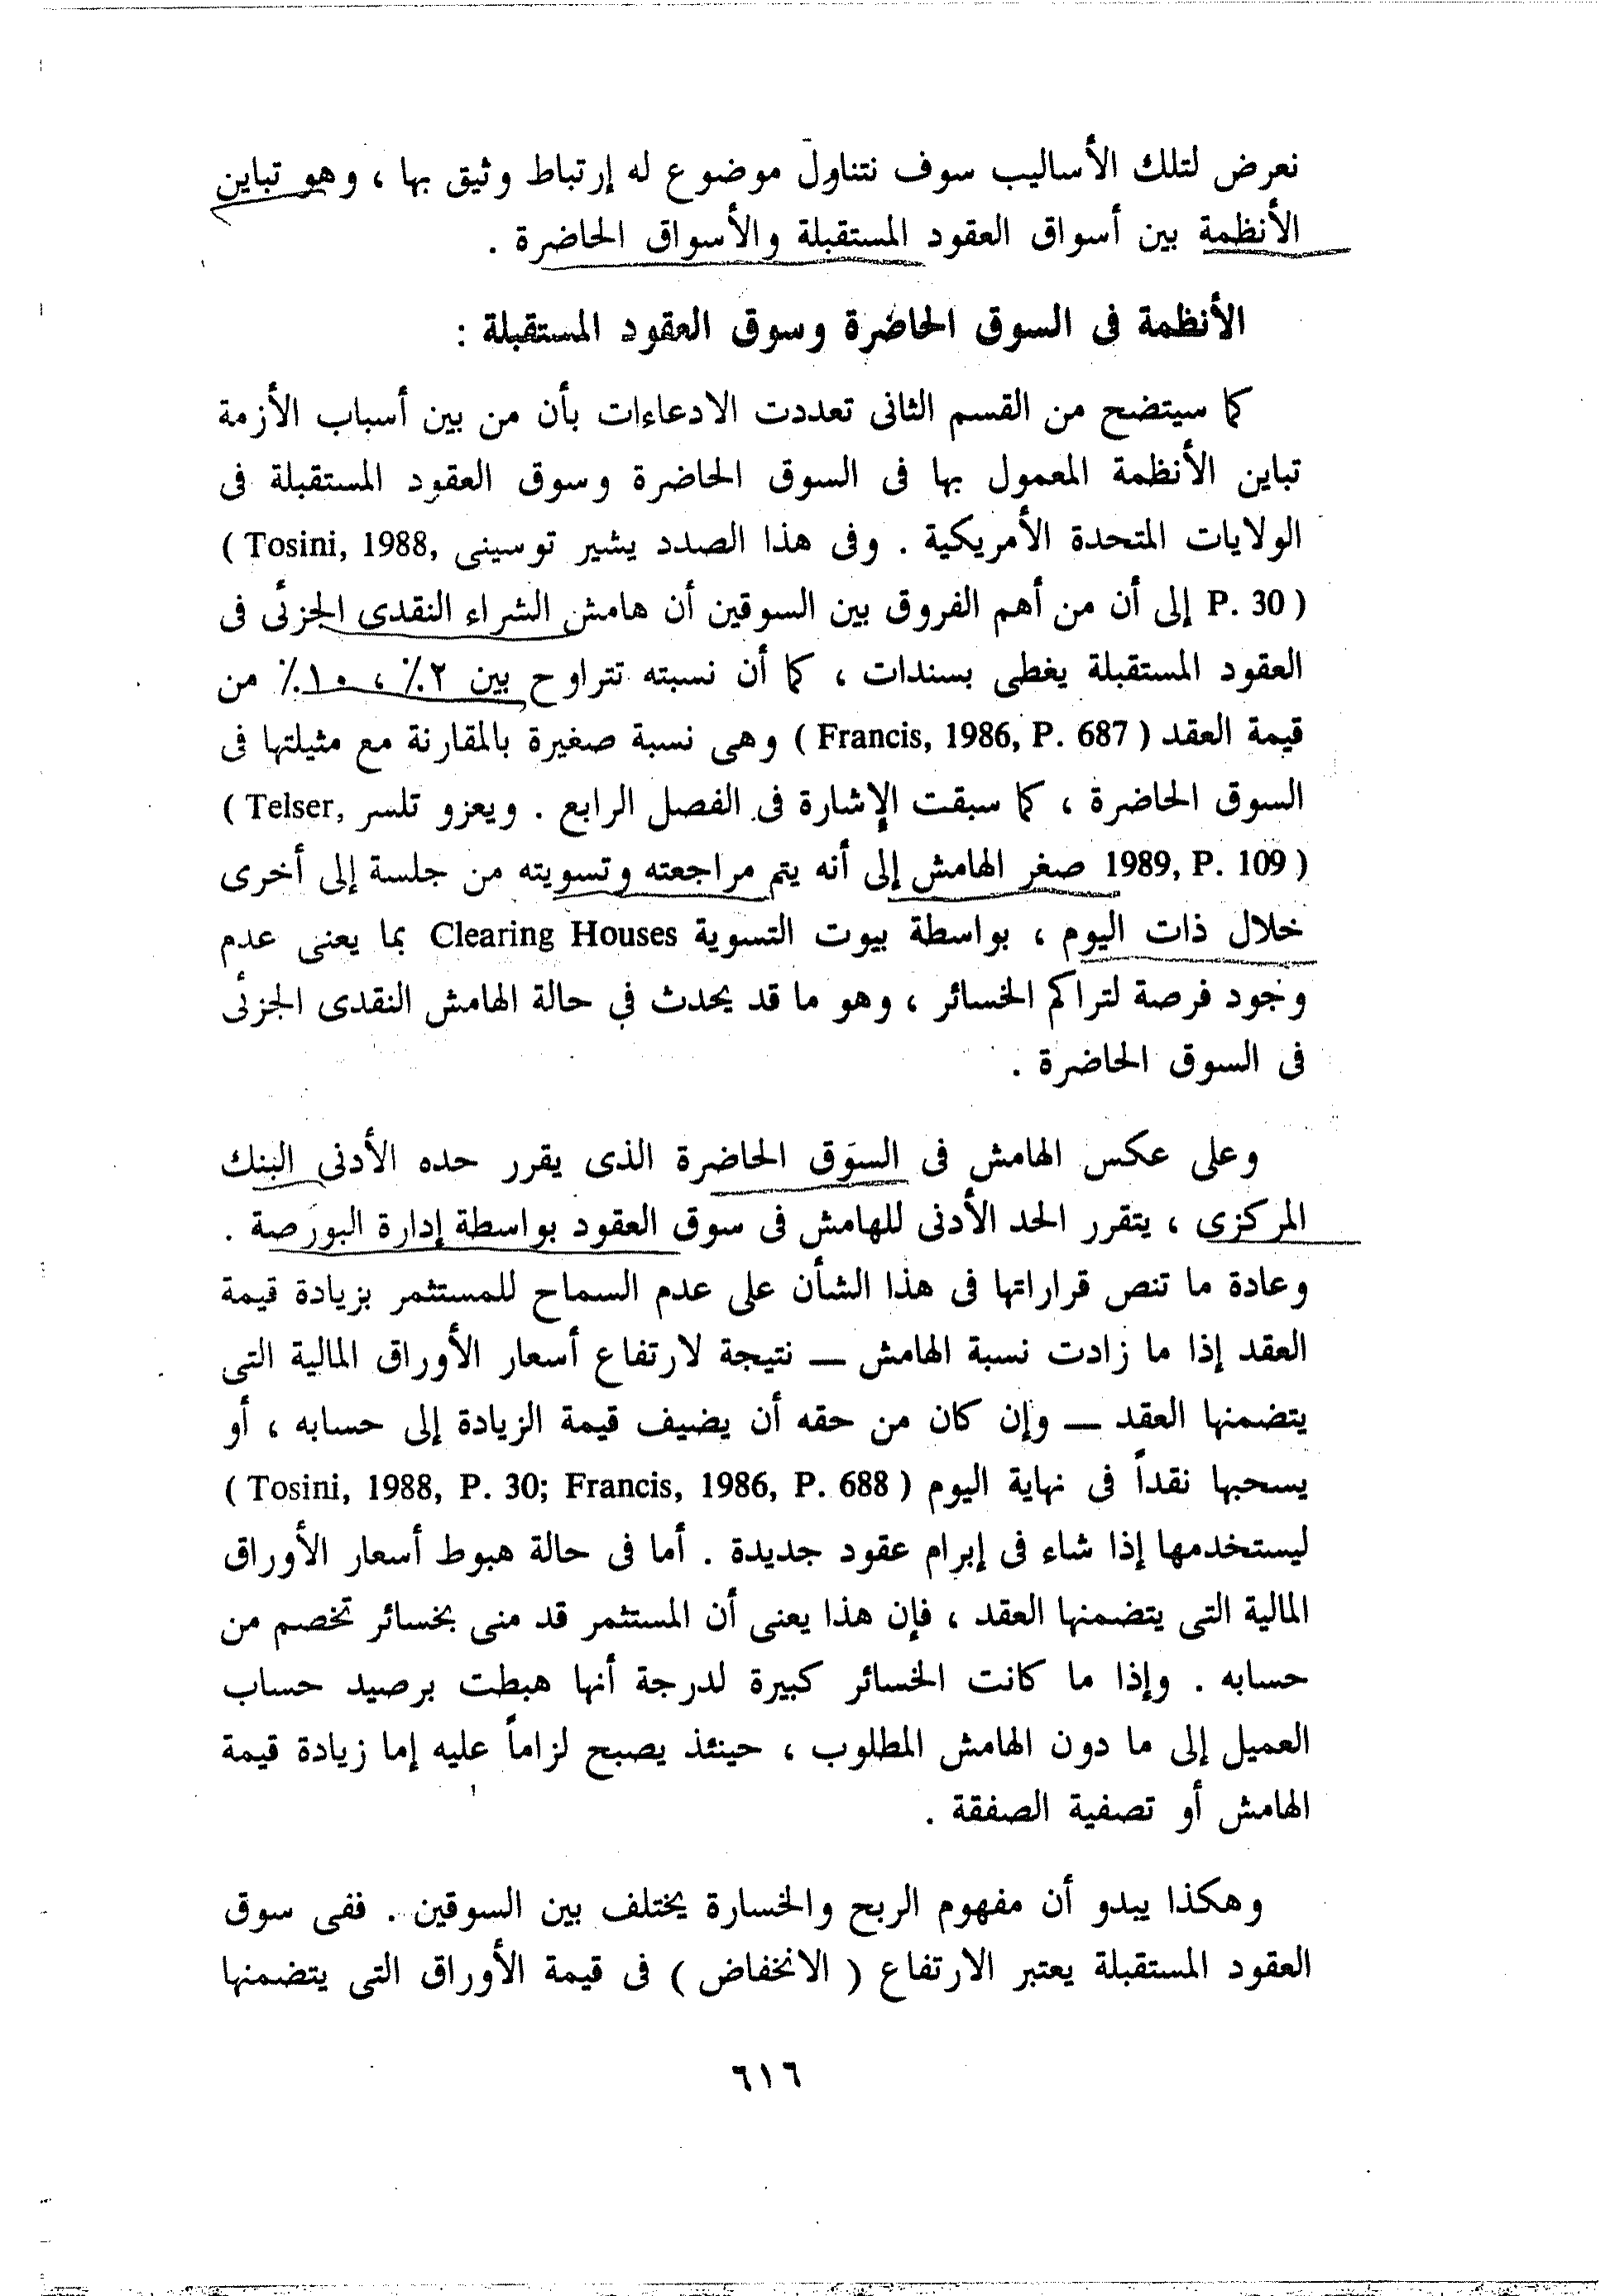 نعرض لتلك الأساليب سوف نتناول موضوع له إرتباط وثيق بها ، وهو تباين
الأنظمة بين أسواق العقود المستقبلة والأسواق الحاضرة .
الأنظمة فى السوق الحاضرة وسوق العقود المستقبلة :
كما سيتضح من القسم الثانى تعددت الادعاءات بأن من بين أسباب الأزمة
تباين الأنظمة المعمول بها فى السوق الحاضرة وسوق العقود المستقبلة فى
الولايات المتحدة الأمريكية . وفى هذا الصدد يشير توسينى (Tosini, 1988,
P. 30 ) إلى أن من أهم الفروق بين السوقين أن هامش الشراء النقدى الجزئى فى
العقود المستقبلة يغطى بسندات ، كما أن نسبته تتراوح بين ٢٪ ، ١٠٪ من
قيمة العقد ( Francis, 1986, P. 687 ) وهى نسبة صغيرة بالمقارنة مع مثيلتها فى
السوق الحاضرة ، كما سبقت الإشارة فى الفصل الرابع . ويعزو تلسر (Telser,
1989, P. 109 ) صغر الهامش إلى أنه يتم مراجعته وتسويته من جلسة إلى أخرى
خلال ذات اليوم ، بواسطة بيوت التسوية Clearing Houses بما يعنى عدم
وجود فرصة لتراكم الخسائر ، وهو ما قد يحدث في حالة الهامش النقدى الجزئى
فى السوق الحاضرة .
وعلى عكس الهامش فى السوق الحاضرة الذى يقرر حده الأدنى البنك
المركزى ، يتقرر الحد الأدنى للهامش فى سوق العقود بواسطة إدارة البورصة .
وعادة ما تنص قراراتها فى هذا الشأن على عدم السماح للمستثمر بزيادة قيمة
العقد إذا ما زادت نسبة الهامش — نتيجة لارتفاع أسعار الأوراق المالية التى
يتضمنها العقد — وإن كان من حقه أن يضيف قيمة الزيادة إلى حسابه ، أو
يسحبها نقداً فى نهاية اليوم ( Tosini, 1988, P. 30; Francis, 1986, P. 688 )
ليستخدمها إذا شاء فى إبرام عقود جديدة . أما فى حالة هبوط أسعار الأوراق
المالية التى يتضمنها العقد ، فإن هذا يعنى أن المستثمر قد منى بخسائر تخصم من
حسابه . وإذا ما كانت الخسائر كبيرة لدرجة أنها هبطت برصيد حساب
العميل إلى ما دون الهامش المطلوب ، حينئذ يصبح لزاماً عليه إما زيادة قيمة
الهامش أو تصفية الصفقة .
وهكذا يبدو أن مفهوم الربح والخسارة يختلف بين السوقين . ففى سوق
العقود المستقبلة يعتبر الارتفاع ( الانخفاض ) فى قيمة الأوراق التى يتضمنها
٦١٦